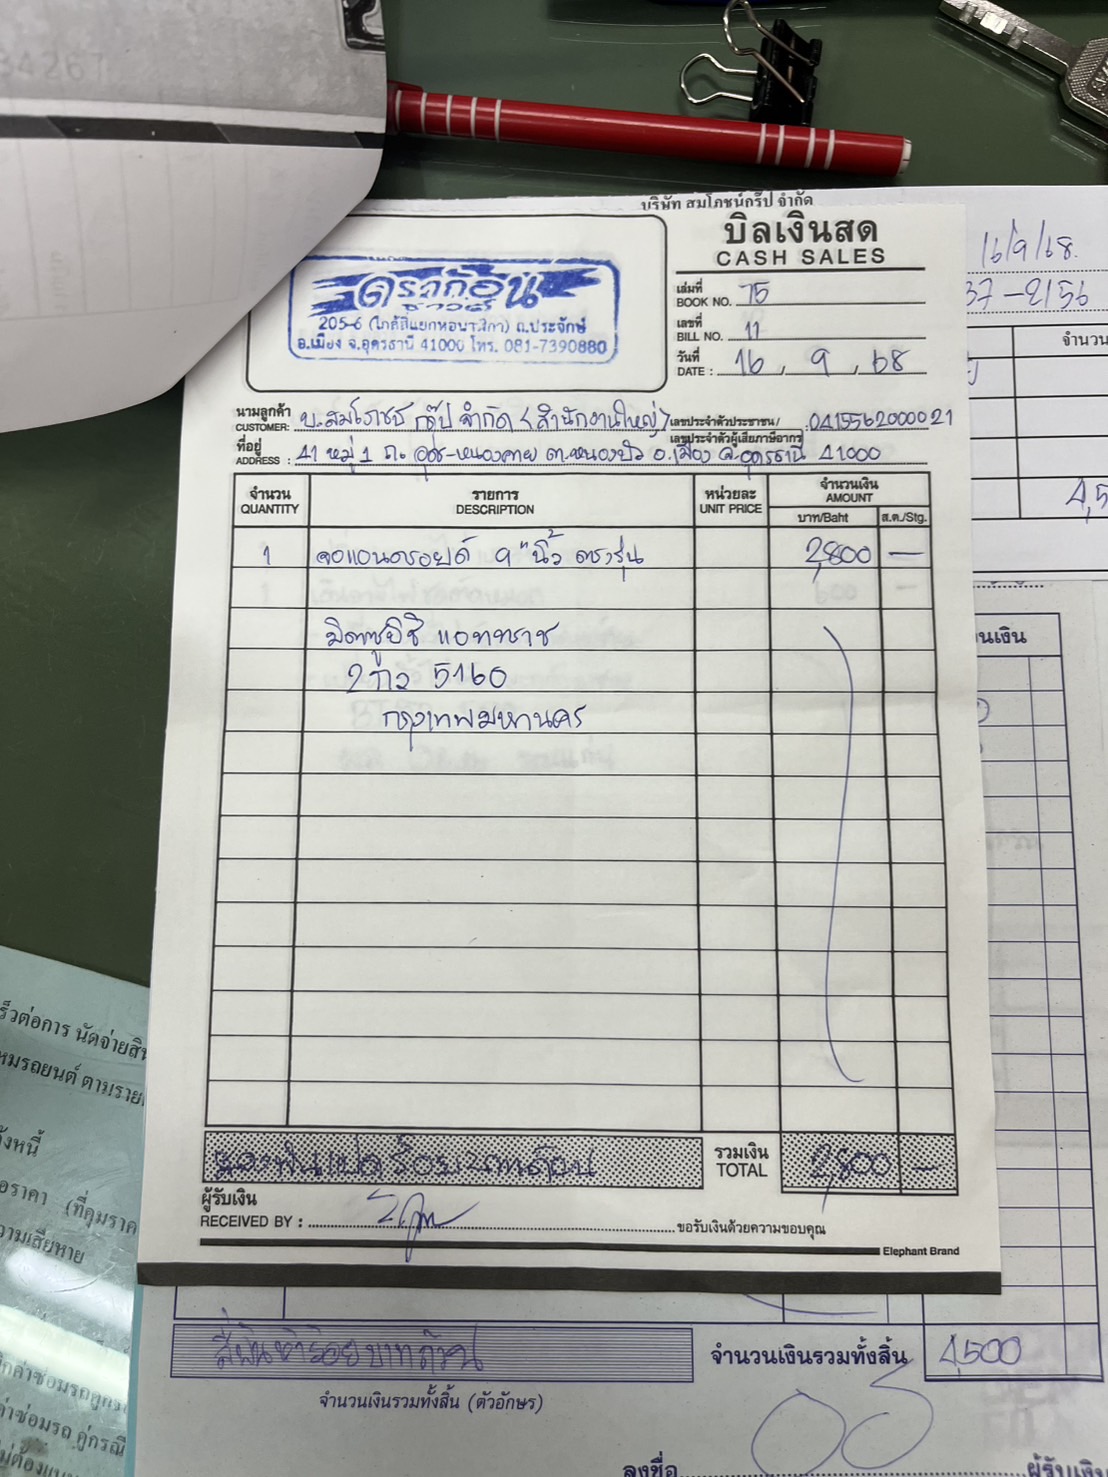 34267
บริษัท สมโภชน์กรุ๊ป จำกัด
บิลเงินสด
CASH SALES
ดราก้อน
ซาวด์
205-6 (ใกล้สี่แยกหอนาฬิกา) ถ.ประจักษ์
อ.เมือง จ.อุดรธานี 41000 โทร. 081-7390880
เล่มที่
BOOK NO. 75
เลขที่
BILL NO. 11
วันที่
DATE : 16 , 9 , 68
นามลูกค้า
CUSTOMER: บ.สมโภชน์ กรุ๊ป จำกัด (สำนักงานใหญ่)
เลขประจำตัวประชาชน/
เลขประจำตัวผู้เสียภาษีอากร 0415562000021
ที่อยู่
ADDRESS : 41 หมู่ 1 ถ. อุดร-หนองคาย ต.หนองบัว อ.เมือง จ.อุดรธานี 41000
จำนวน รายการ หน่วยละ จำนวนเงิน
QUANTITY DESCRIPTION UNIT PRICE AMOUNT
บาท/Baht ส.ต./Stg.
1 จอแอนดรอยด์ 9" นิ้ว ตรงรุ่น 2,800 —
มิตซูบิชิ แอททราจ
2 กว 5160
กรุงเทพมหานคร
สองพันแปดร้อยบาทถ้วน รวมเงิน
TOTAL 2,800 —
ผู้รับเงิน
RECEIVED BY : ขอรับเงินด้วยความขอบคุณ
Elephant Brand
16/9/68
37-2156
จำนวน
4,5
นวนเงิน
ร็วต่อการ นัดจ่ายสิน
หมรถยนต์ ตามราย
ังหนี้
อราคา (ที่คุมราค
วามเสียหาย
สี่พันห้าร้อยบาทถ้วน จำนวนเงินรวมทั้งสิ้น 4,500
จำนวนเงินรวมทั้งสิ้น (ตัวอักษร)
ค่าซ่อมรถ คู่กรณี
ลงชื่อ ผู้รับเงิน